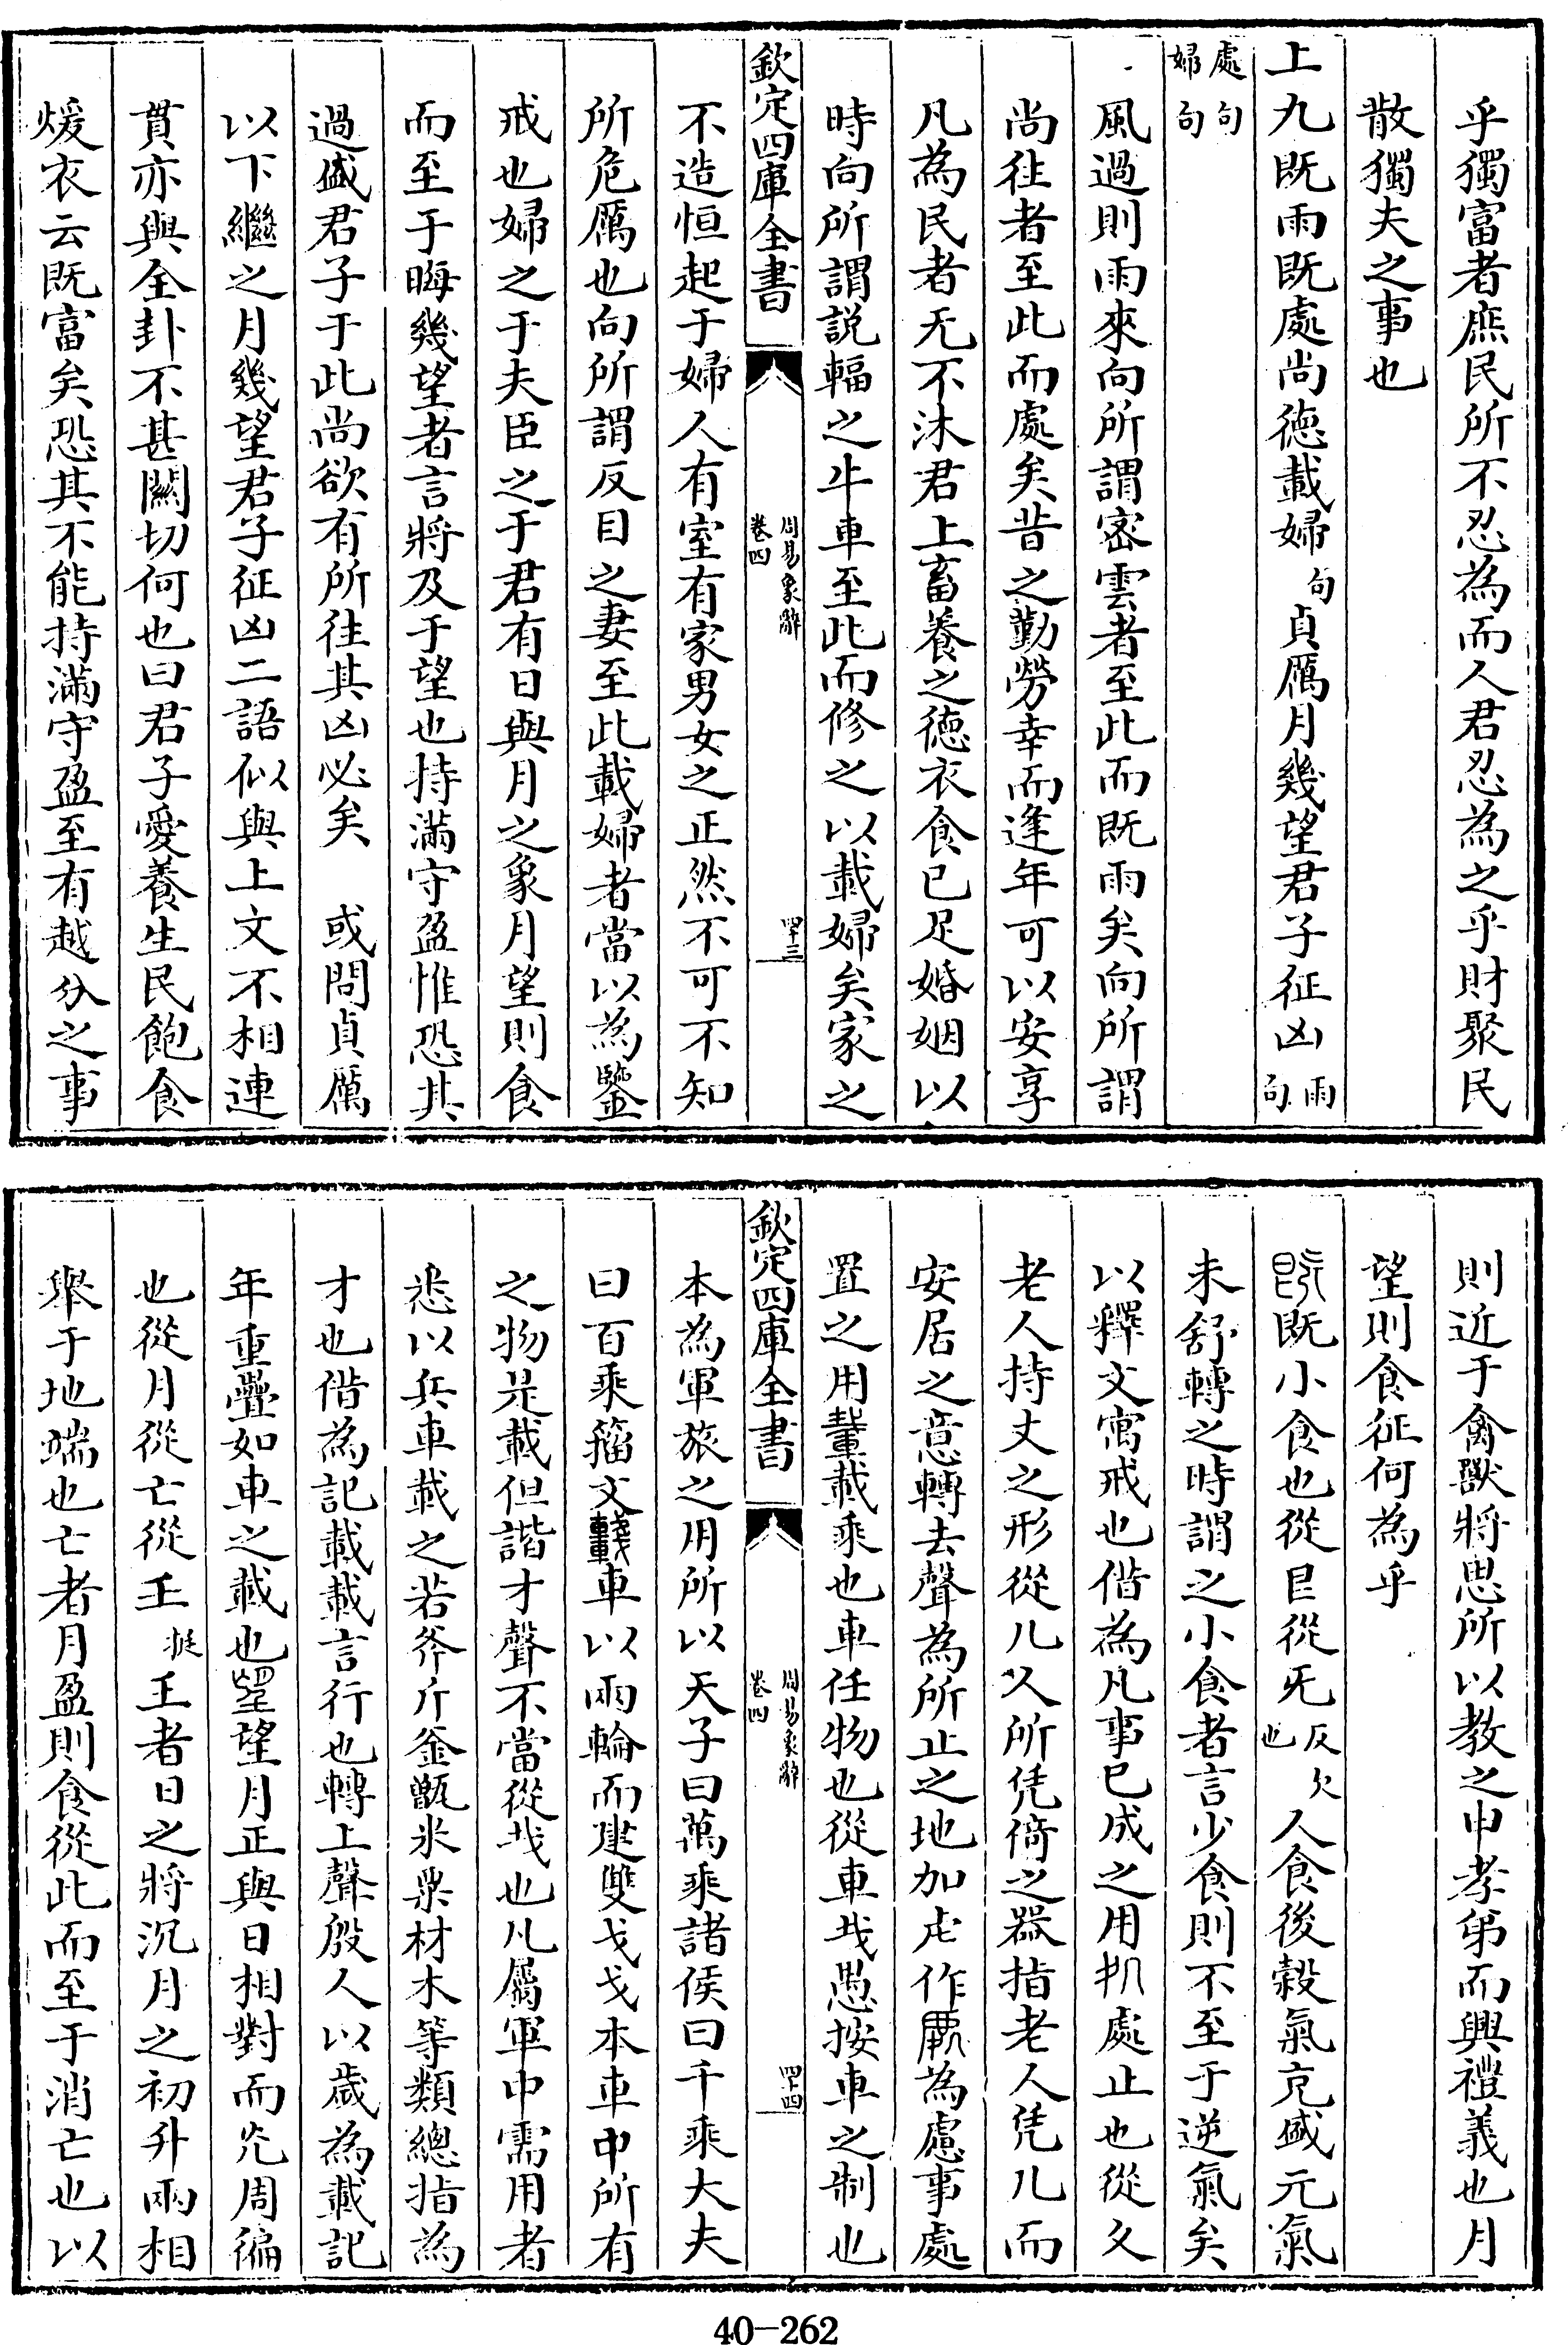 乎獨富者庶民所不忍為而人君忍為之乎財聚民
散獨夫之事也
上九既雨既處尚徳載婦句貞厲月幾望君子征凶雨句
處句婦句
風過則雨來向所謂密雲者至此而既雨矣向所謂
尚往者至此而處矣昔之勤勞幸而逢年可以安享
凡為民者无不沐君上畜養之徳衣食已足婚姻以
時向所謂説輻之牛車至此而修之以載婦矣家之
欽定四庫全書
周易象辭
卷四
四十三
不造恒起于婦人有室有家男女之正然不可不知
所危厲也向所謂反目之妻至此載婦者當以為鑒
戒也婦之于夫臣之于君有日與月之象月望則食
而至于晦幾望者言將及于望也持滿守盈惟恐其
過盛君子于此尚欲有所往其凶必矣　或問貞厲
以下繼之月幾望君子征凶二語似與上文不相連
貫亦與全卦不甚關切何也曰君子愛養生民飽食
煖衣云既富矣恐其不能持滿守盈至有越分之事
則近于禽獸將思所以教之申孝弟而興禮義也月
望則食征何為乎
既小食也從皀從旡反欠也人食後榖氣充盛元氣
未舒轉之時謂之小食者言少食則不至于逆氣矣
以釋文寓戒也借為凡事已成之用処處止也從夂
老人持丈之形從几久所凭倚之器指老人凭几而
安居之意轉去聲為所止之地加虍作處為處事處
置之用載乘也車任物也從車𢦏愚按車之制也
欽定四庫全書
周易象辭
卷四
四十四
本為軍旅之用所以天子曰萬乘諸侯曰千乘大夫
曰百乘籀文車以兩輪而建雙戈戈本車中所有
之物是載但諧才聲不當從𢦏也凡屬軍中需用者
悉以兵車載之若斧斤釡甑米粟材木等類總指為
才也借為記載載言行也轉上聲殷人以歲為載記
年重疊如車之載也望月正與日相對而光周徧
也從月從亡從𡈼挺𡈼者日之將沉月之初升兩相
舉于地端也亡者月盈則食從此而至于消亡也以
40-262